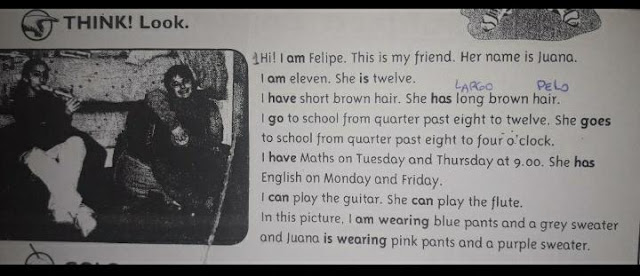 THINK! Look.
Hi! I am Felipe. This is my friend. Her name is Juana.
I am eleven. She is twelve.
LARGO PELO
I have short brown hair. She has long brown hair.
I go to school from quarter past eight to twelve. She goes
to school from quarter past eight to four o'clock.
I have Maths on Tuesday and Thursday at 9.00. She has
English on Monday and Friday.
I can play the guitar. She can play the flute.
In this picture, I am wearing blue pants and a grey sweater
and Juana is wearing pink pants and a purple sweater.